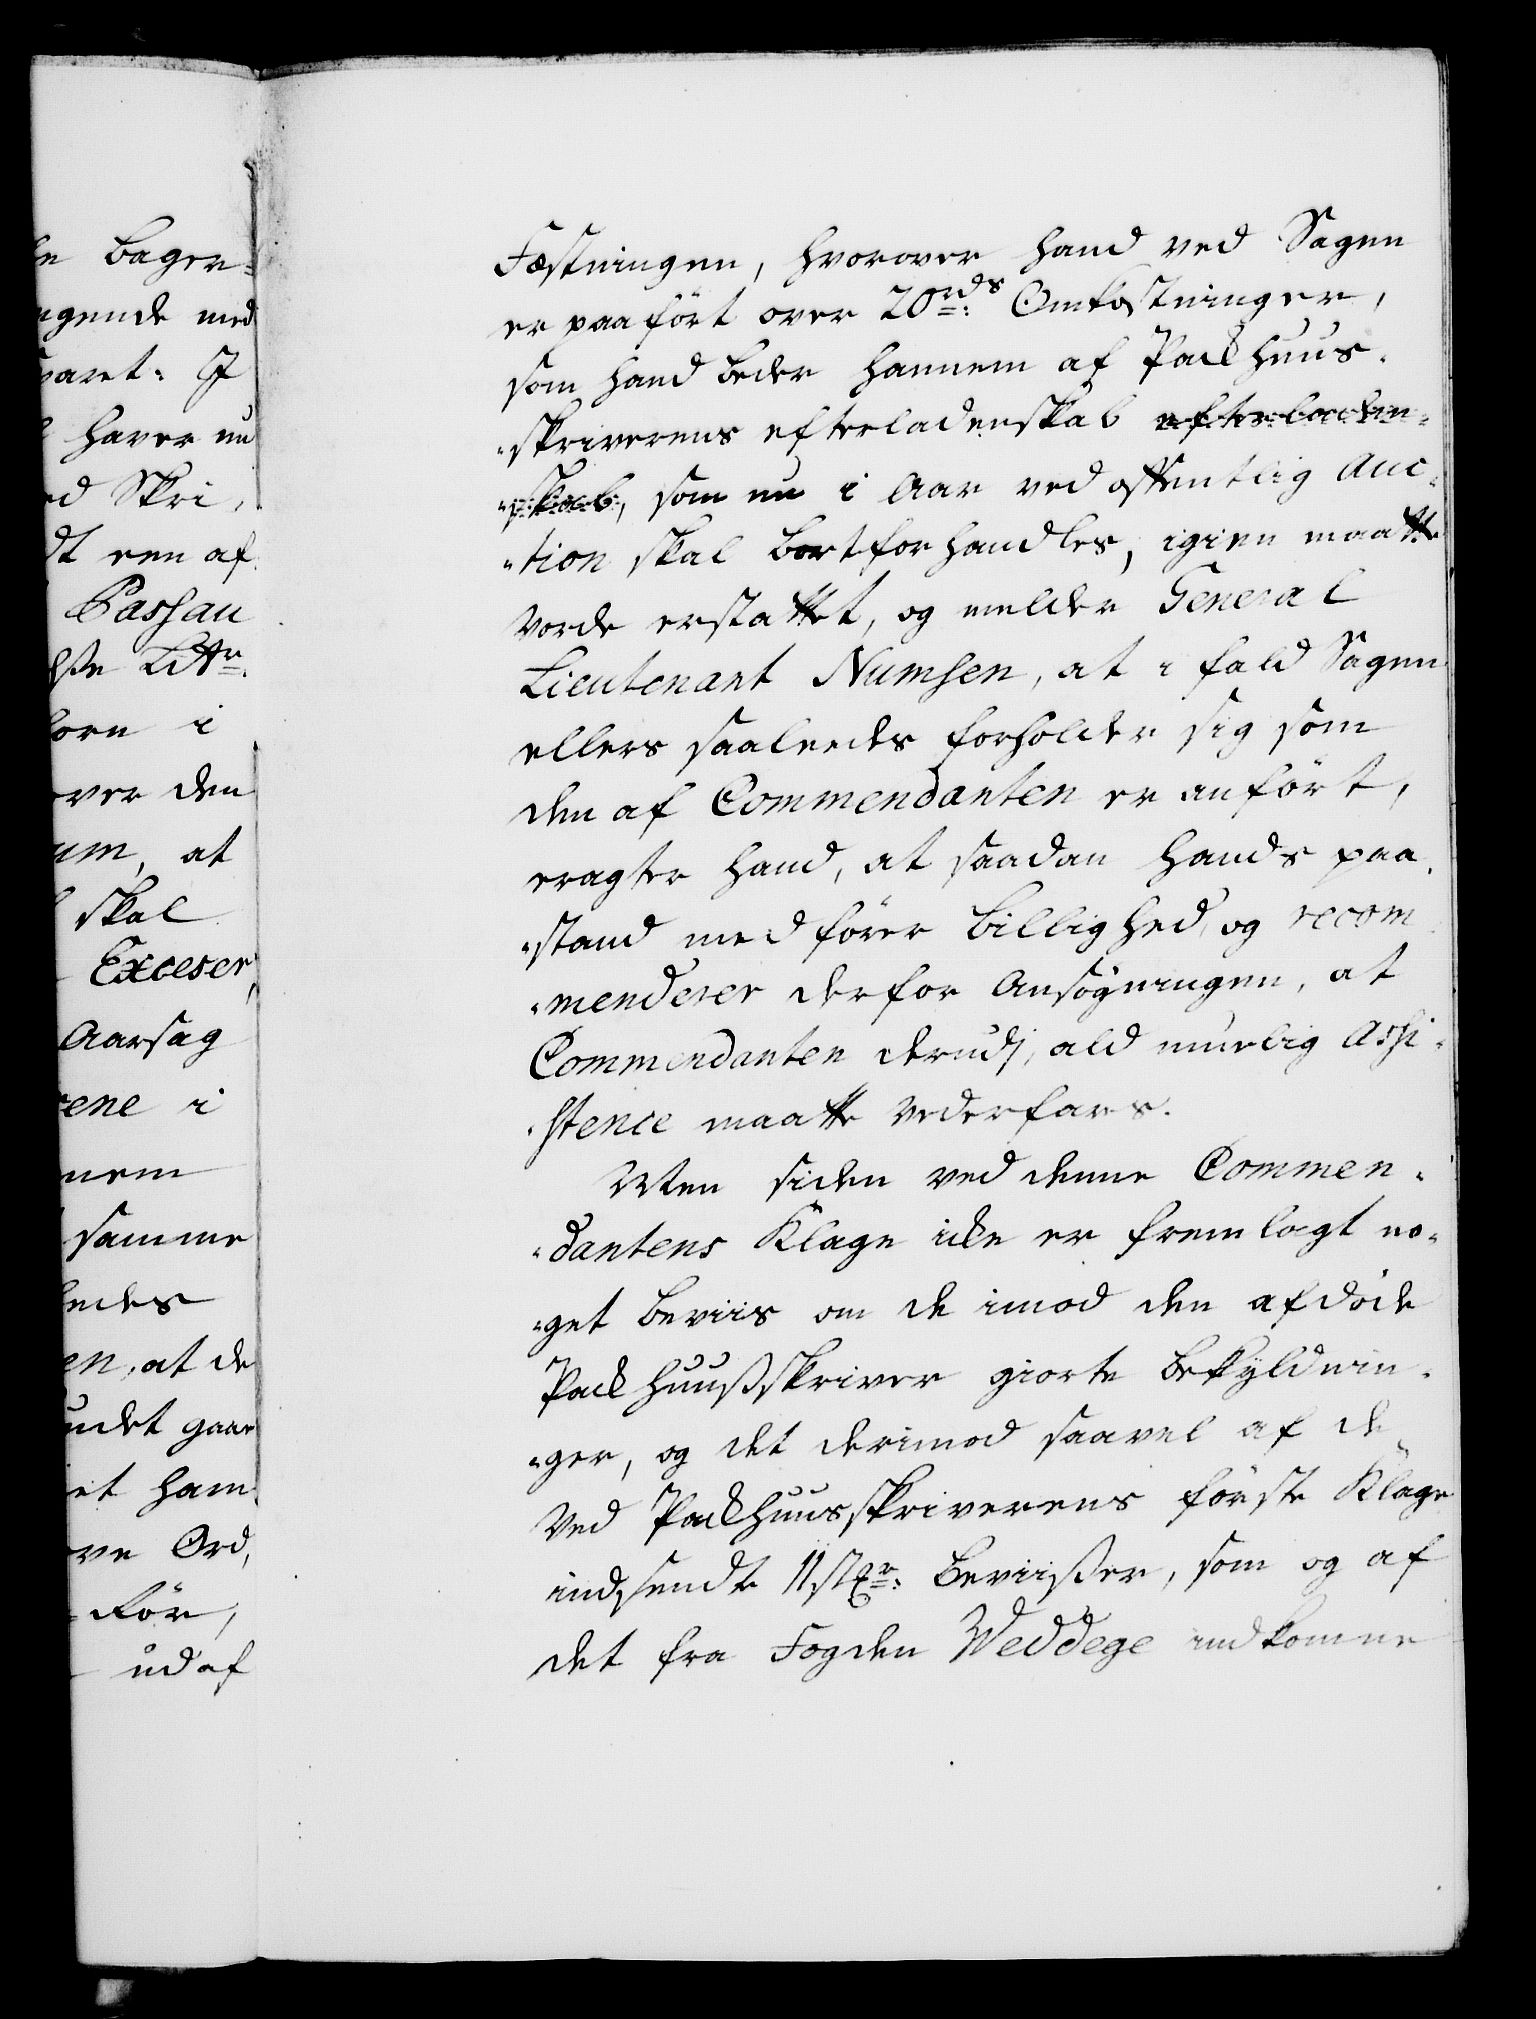 Fæstningen, hvorover hand ved Sagen
er paaført over 20 rds: Omkostninger,
som hand beder hannem af Packhuus-
-skriverens efterladenskab efterladen-
-skab, som nu i Aar ved offentlig Auc-
-tion skal bortforhandles, igien maatte
vorde erstattet, og melder General
Lieutenant Numsen, at i fald Sagen
ellers saaledes forholder sig som
den af Commendanten er anført,
eragter hand, at saadan hands paa-
-stand medfører billighed, og recom-
-menderer derfor Ansøgningen, at
Commendanten derudj, ald muelig Assi-
-stence maatte vederfares.
Men siden ved denne Commen-
-dantens Klage icke er fremlagt no-
-get beviis om de imod den afdøde
Packhuusskriver giorte beskyldnin-
-ger, og det derimod saavel af de
ved Packhuusskriverens første Klage
indsendte 11 stkr: beviisser, som og af
det fra Fogden Weddege indkomne
le bager-
gende med
varet: J
haver nu
ed Skri-
dt een af
Passau
Littr.
orn i
over den
um, at
skal
Exceser,
Aarsag
rene i
nem
samme
ledes
en, at de
undet gaae
et ham
ve Ord,
før,
ud af